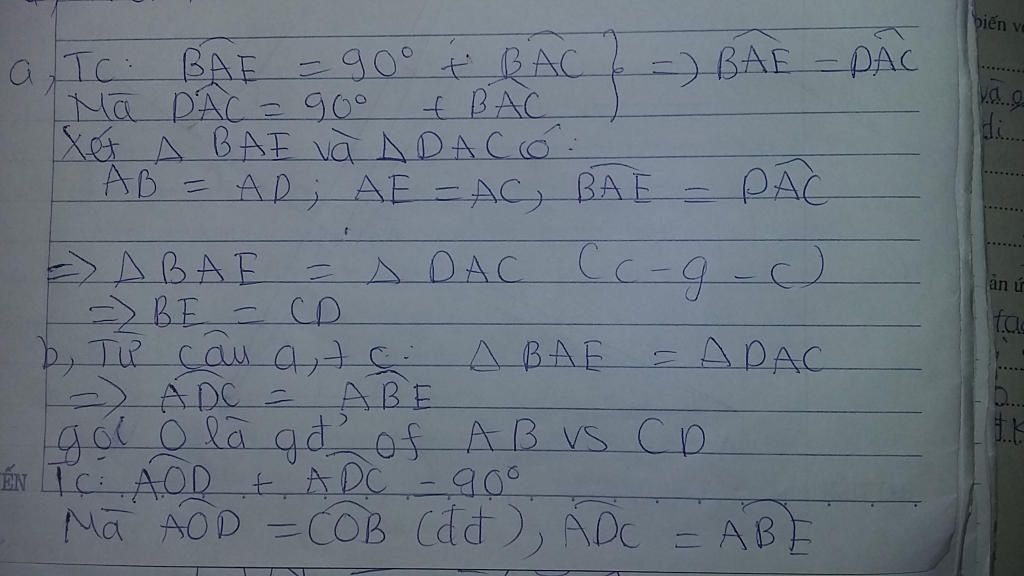 a, Tc: BAE = 90° + BAC } => BAE = DAC
Mà DAC = 90° + BAC
Xét Δ BAE và Δ DAC có:
AB = AD; AE = AC, BAE = DAC
=> Δ BAE = Δ DAC (c-g-c)
=> BE = CD
b, Từ câu a, tc: Δ BAE = Δ DAC
=> ADC = ABE
gọi O là gđ' of AB vs CD
Tc: AOD + ADC = 90°
Mà AOD = COB (đđ), ADC = ABE
biến
và g
di
ản ứ
ẾN